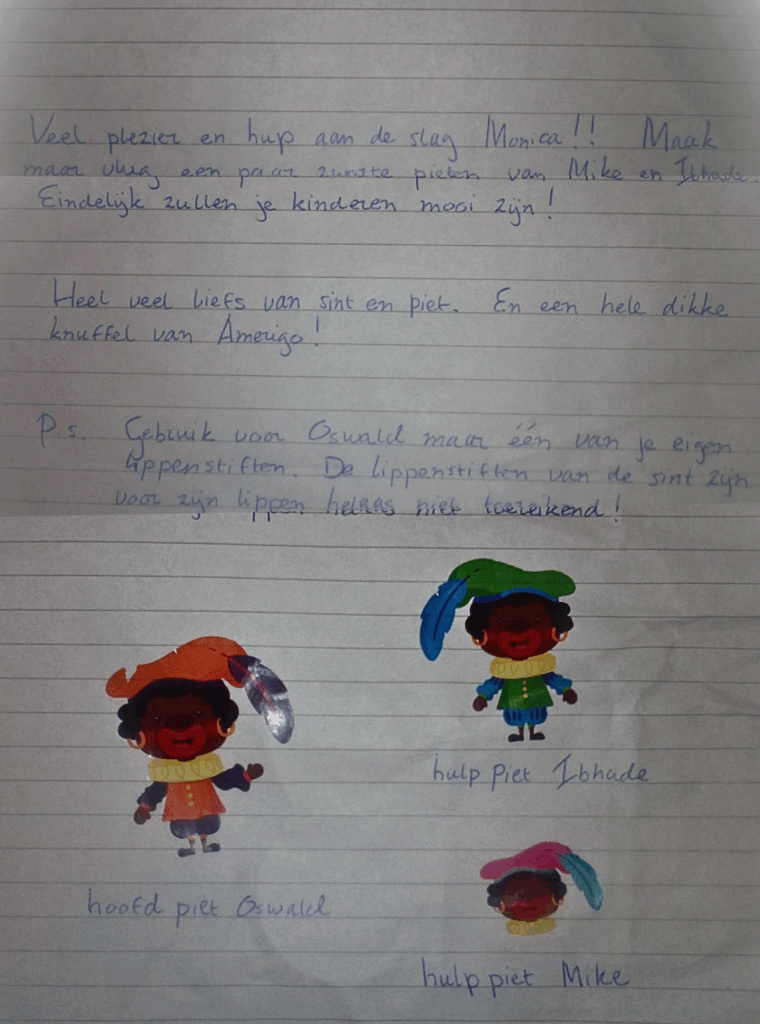 Veel plezier en hup aan de slag Monica!! Maak
maar vlug een paar zwarte pieten van Mike en Ibhade.
Eindelijk zullen je kinderen mooi zijn!
Heel veel liefs van sint en piet. En een hele dikke
knuffel van Amerigo!
P.s. Gebruik voor Oswald maar één van je eigen
lippenstiften. De lippenstiften van de sint zijn
voor zijn lippen helaas niet toereikend!
hulp Piet Ibhade
hoofd piet Oswald
hulp piet Mike